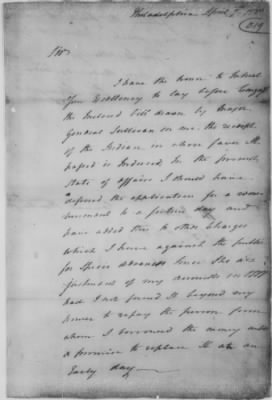 Philadelphia April
219
Sir
I have the honor to Intreat
Your Excellency to lay before Congress
the Enclosed bill drawn by Major
General Sullivan on me. the receipt
of the Indian in whose favor the
paper is Indorsed. In the present
State of affairs I should have
deferred the application for a
to a future day and
have added this to other Charges
which I have against the public
for Specie advanced Since the
adjustment of my accounts in
had I not found It beyond my
power to repay the person from
whom I borrowed the money under
a promise to replace It at an
Early day